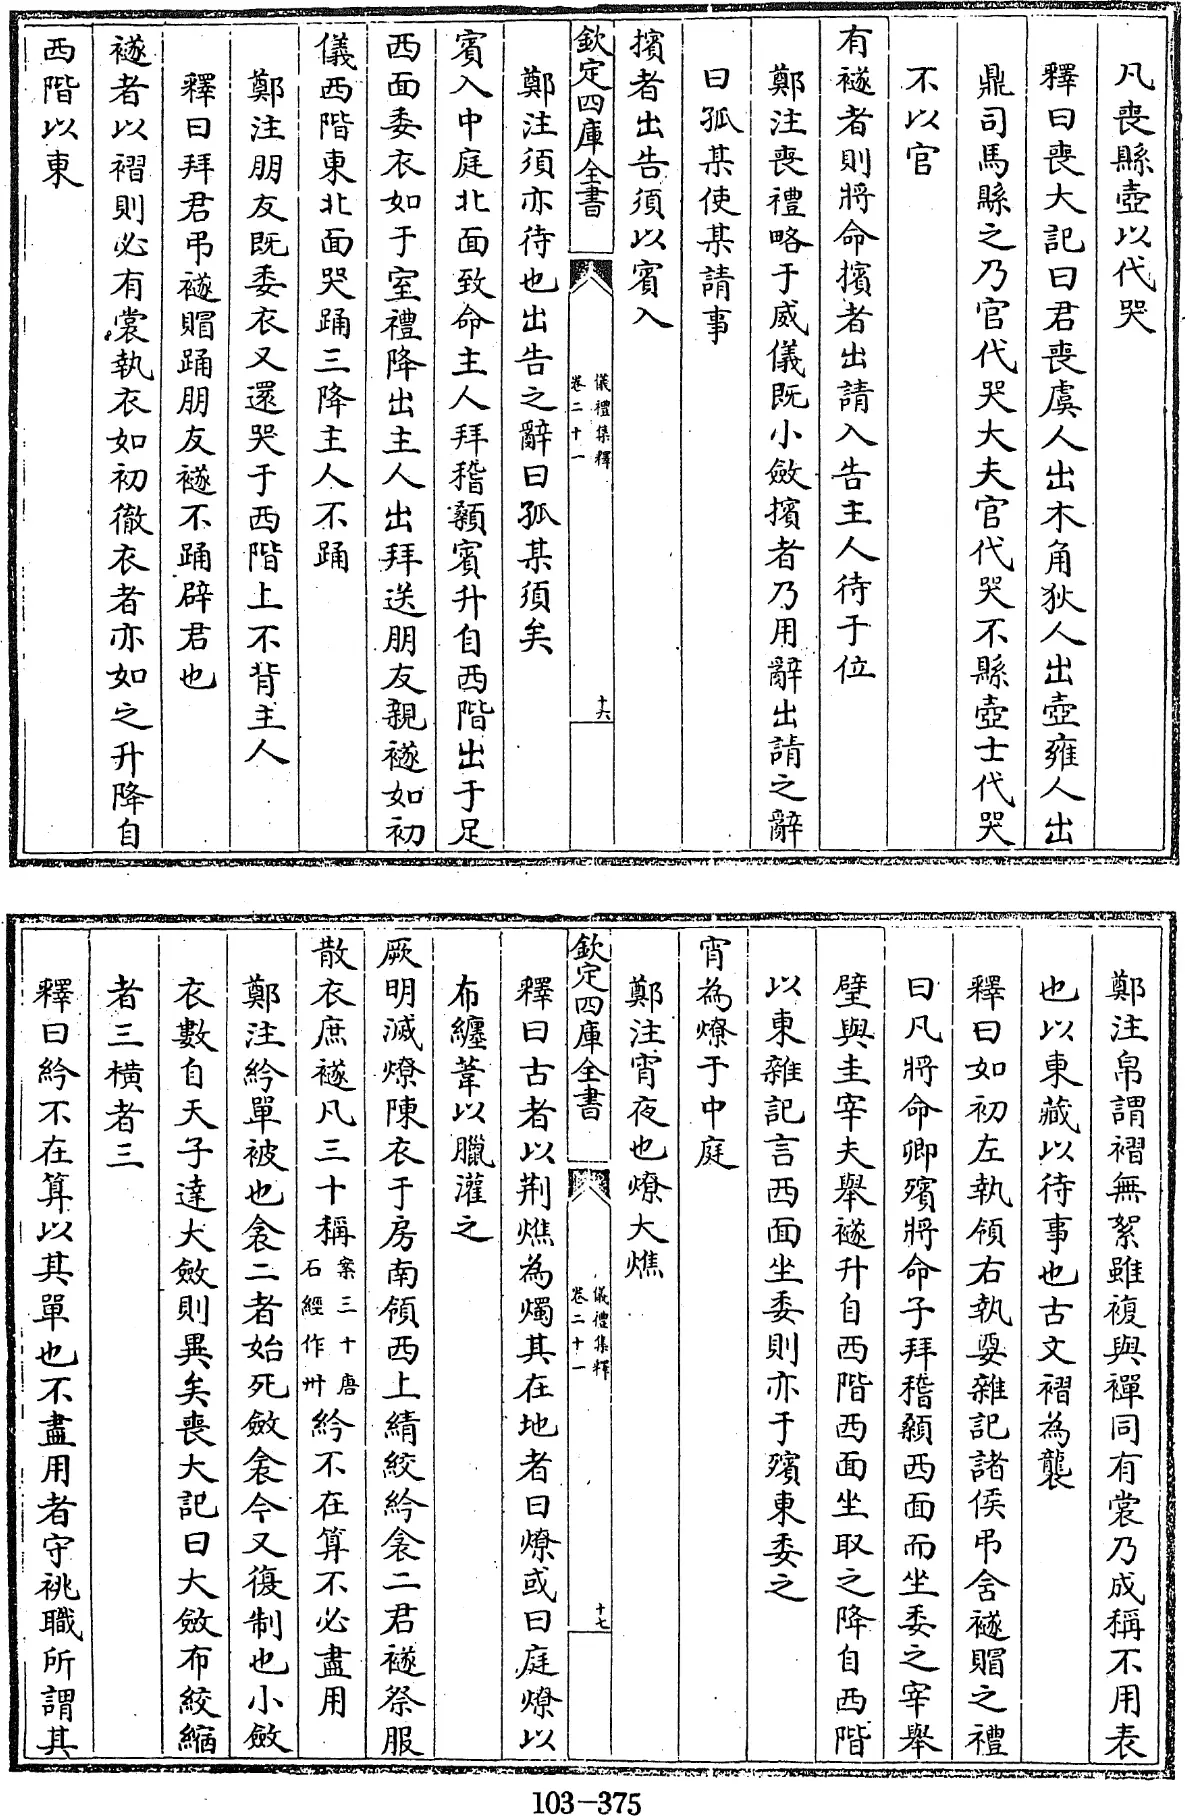 凡喪縣壺以代哭
釋曰喪大記曰君喪虞人出木角狄人出壺雍人出
鼎司馬縣之乃官代哭大夫官代哭不縣壺士代哭
不以官
有襚者則將命擯者出請入告主人待于位
鄭注喪禮略于威儀既小斂擯者乃用辭出請之辭
曰孤某使某請事
擯者出告須以賓入
欽定四庫全書
儀禮集釋
卷二十一
十六
鄭注須亦待也出告之辭曰孤某須矣
賓入中庭北面致命主人拜稽顙賓升自西階出于足
西面委衣如于室禮降出主人出拜送朋友親襚如初
儀西階東北面哭踊三降主人不踊
鄭注朋友既委衣又還哭于西階上不背主人
釋曰拜君弔襚賵踊朋友襚不踊辟君也
襚者以褶則必有裳執衣如初徹衣者亦如之升降自
西階以東
鄭注帛謂褶無絮雖複與襌同有裳乃成稱不用表
也以東藏以待事也古文褶為襲
釋曰如初左執領右執要雜記諸侯弔含襚賵之禮
曰凡將命卿殯將命子拜稽顙西面而坐委之宰舉
璧與圭宰夫舉襚升自西階西面坐取之降自西階
以東雜記言西面坐委則亦于殯東委之
宵為燎于中庭
鄭注宵夜也燎大燋
欽定四庫全書
儀禮集釋
卷二十一
十七
釋曰古者以荆燋為燭其在地者曰燎或曰庭燎以
布纏葦以臘灌之
厥明滅燎陳衣于房南領西上綪絞紟衾二君襚祭服
散衣庶襚凡三十稱案三十唐石經作卅紟不在算不必盡用
鄭注紟單被也衾二者始死斂衾今又復制也小斂
衣數自天子達大斂則異矣喪大記曰大斂布絞縮
者三横者三
釋曰紟不在算以其單也不盡用者守祧職所謂其
103-375